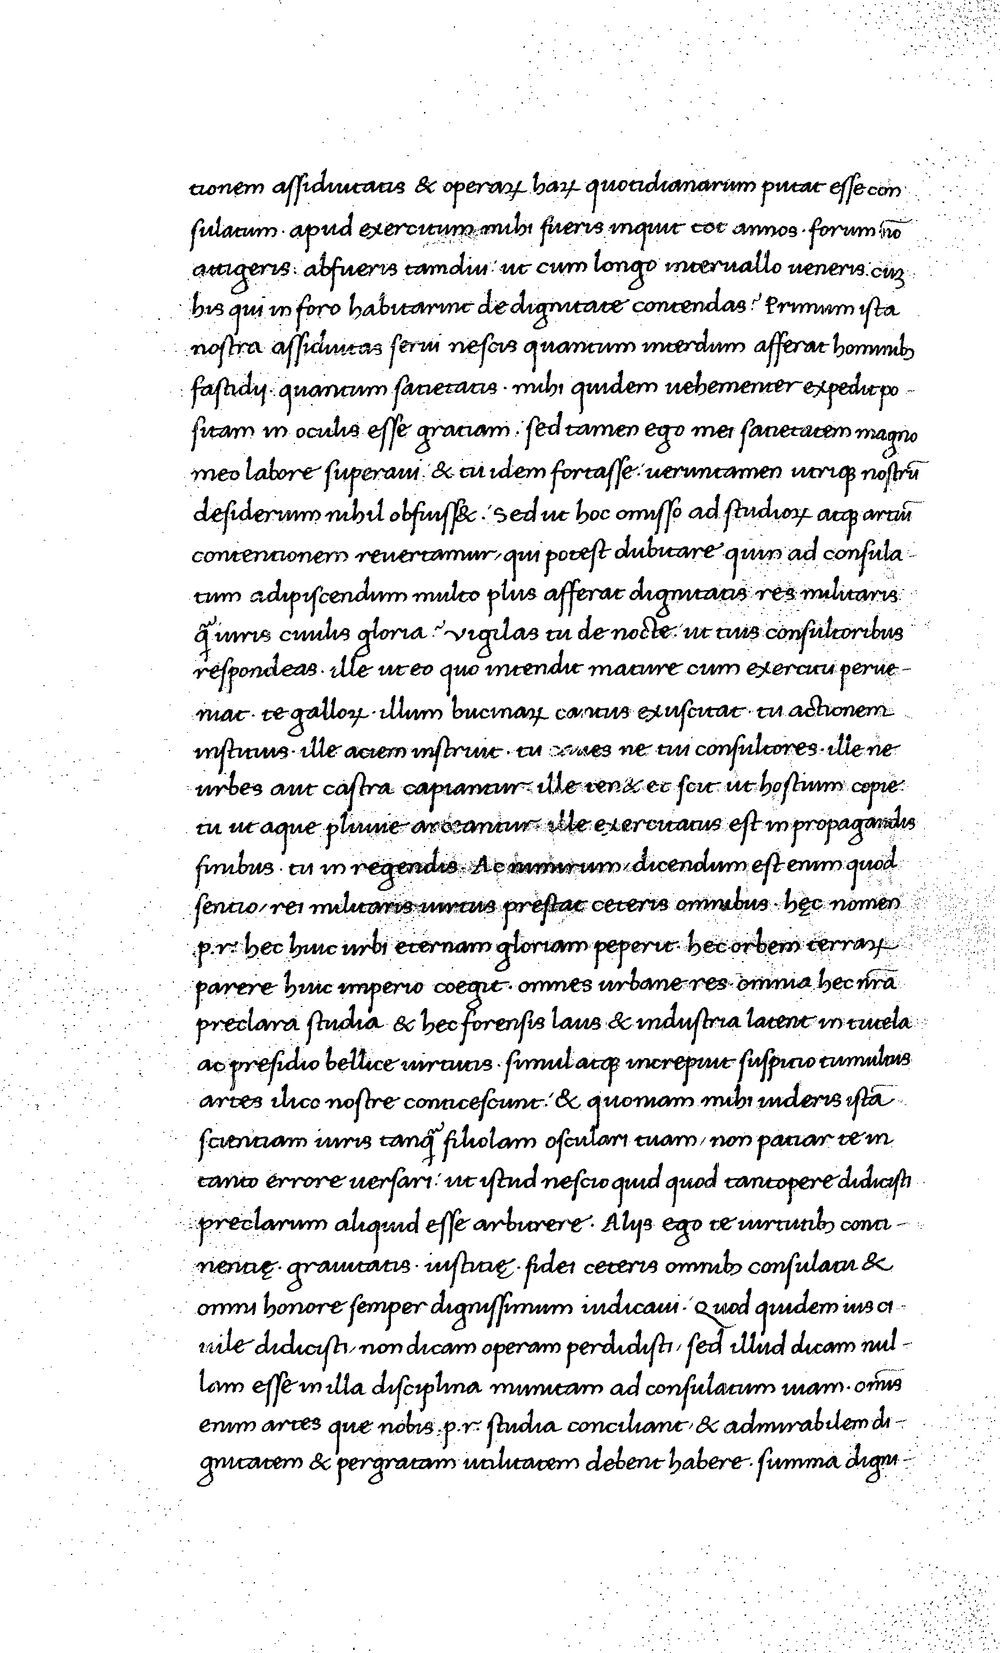 tionem assiduitatis & operaꝝ haꝝ quotidianarum putat esse con
sulatum · apud exercitum mihi fueris inquit tot annos · forum nō
attigeris: abfueris tamdiu: ut cum longo interuallo ueneris: cuꝫ
his qui in foro habitarint de dignitate contendas? Primum ista
nostra assiduitas serui nescis quantum interdum afferat hominibꝫ
fastidij · quantum satietatis · mihi quidem uehementer expedit po-
sitam in oculis esse gratiam: sed tamen ego mei satietatem magno
meo labore superaui: & tu idem fortasse: ueruntamen utriqꝫ nostrū
desiderium nihil obfuiss&. Sed ut hoc omisso ad studioꝝ atqꝫ artiū
contentionem reuertamur, qui potest dubitare quin ad consula-
tum adipiscendum multo plus afferat dignitatis res militaris
ꝗ̃ iuris ciuilis gloria? Vigilas tu de nocte: ut tuis consultoribus
respondeas · ille ut eo quo intendit mature cum exercitu perue-
niat · te galloꝝ · illum bucinaꝝ cantus exuscitat · tu actionem
instituis · ille aciem instruit · tu caues ne tui consultores · ille ne
urbes aut castra capiantur: ille ten& et scit ut hostium copie
tu ut aque pluuie arceantur: ille exercitatus est in propagandis
finibus · tu in regendis. Ac nimirum, dicendum est enim quod
sentio, rei militaris uirtus prestat ceteris omnibus · hęc nomen
p.r. hec huic urbi eternam gloriam peperit · hec orbem terraꝝ
parere huic imperio coegit · omnes urbane res omnia hec nr̄a
preclara studia & hec forensis laus & industria latent in tutela
ac presidio bellice uirtutis · simul atqꝫ increpuit suspitio tumultus
artes ilico nostre conticescunt: & quoniam mihi uideris istā
scientiam iuris tanꝗ̃ filiolam osculari tuam, non patiar te in
tanto errore uersari: ut istud nescio quid quod tantopere didicisti
preclarum aliquid esse arbitrere. Alijs ego te uirtutibꝫ conti-
nentię · grauitatis · iustitię · fidei ceteris omnibꝫ consulatu &
omni honore semper dignissimum iudicaui. Quod quidem ius ci-
uile didicisti, non dicam operam perdidisti, sed illud dicam nul-
lam esse in illa disciplina munitam ad consulatum uiam · om̄is
enim artes que nobis .p.r. studia conciliant, & admirabilem di-
gnitatem & pergratam utilitatem debent habere · summa digni-